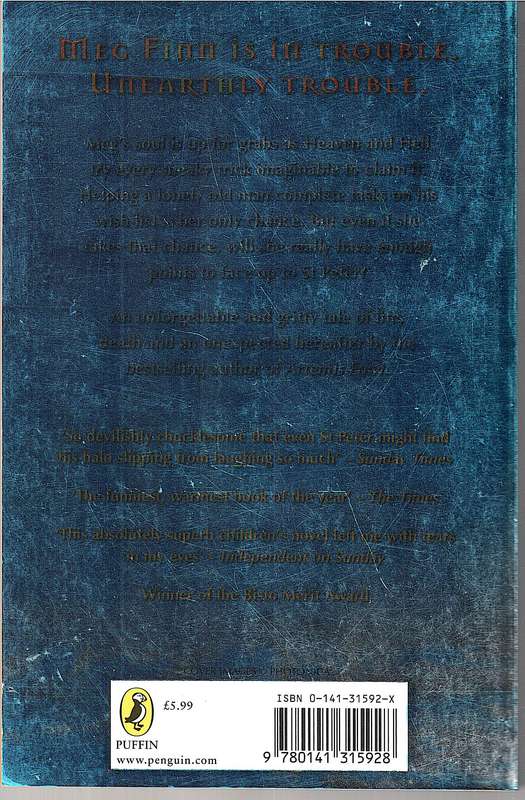 MEG FINN IS IN TROUBLE.
UNEARTHLY TROUBLE.
Meg's soul is up for grabs as Heaven and Hell
try every sneaky trick imaginable to claim it.
Helping a lonely old man complete tasks on his
wish list is her only chance. But even if she
takes that chance, will she really have enough
points to face up to St Peter?
An unforgettable and gritty tale of life,
death and an unexpected hereafter by the
bestselling author of Artemis Fowl.
'So devilishly chucklesome that even St Peter might find
his halo slipping from laughing so much' – Sunday Times
'The funniest, warmest book of the year' – The Times
'This absolutely superb children's novel left me with tears
in my eyes' – Independent on Sunday
Winner of the Bisto Merit Award
COVER IMAGES © PHOTONICA
£5.99
PUFFIN
www.penguin.com
ISBN 0-141-31592-X
9 780141 315928